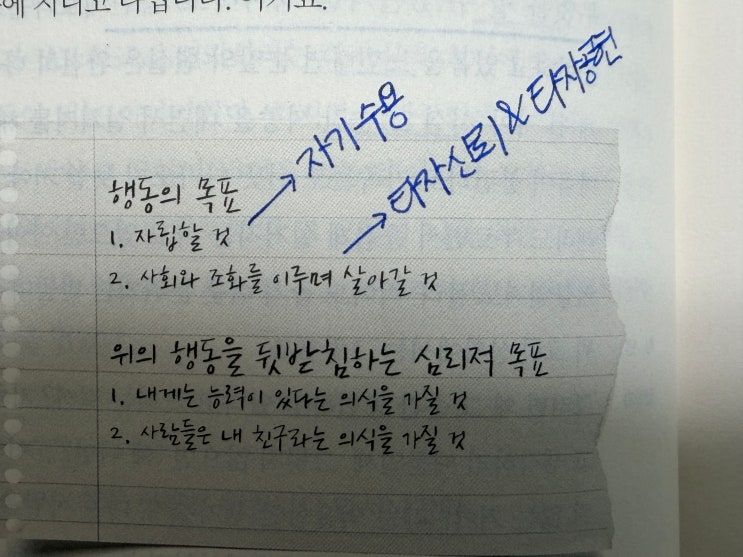 지니고 다닙니다. 여기요.
자기수용
타자신뢰 & 타자공헌
행동의 목표
1. 자립할 것
2. 사회와 조화를 이루며 살아갈 것
위의 행동을 뒷받침하는 심리적 목표
1. 내게는 능력이 있다는 의식을 가질 것
2. 사람들은 내 친구라는 의식을 가질 것